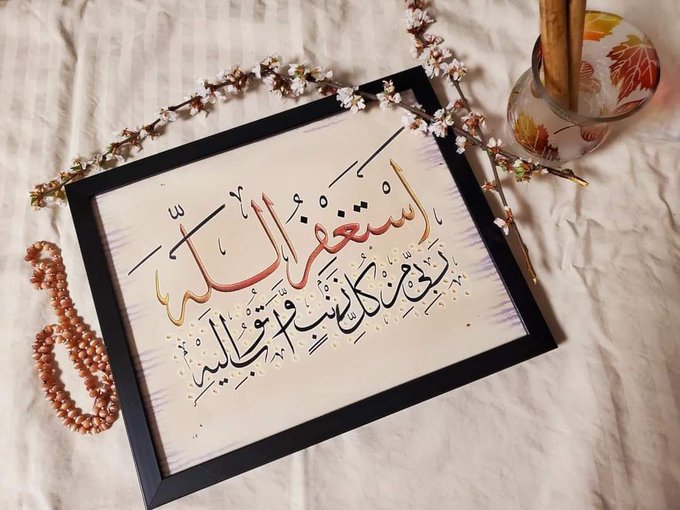 اَسْتَغْفِرُ اللّٰهَ
رَبِّىْ مِنْ كُلِّ ذَنْبٍ وَّاَتُوْبُ اِلَيْهِ